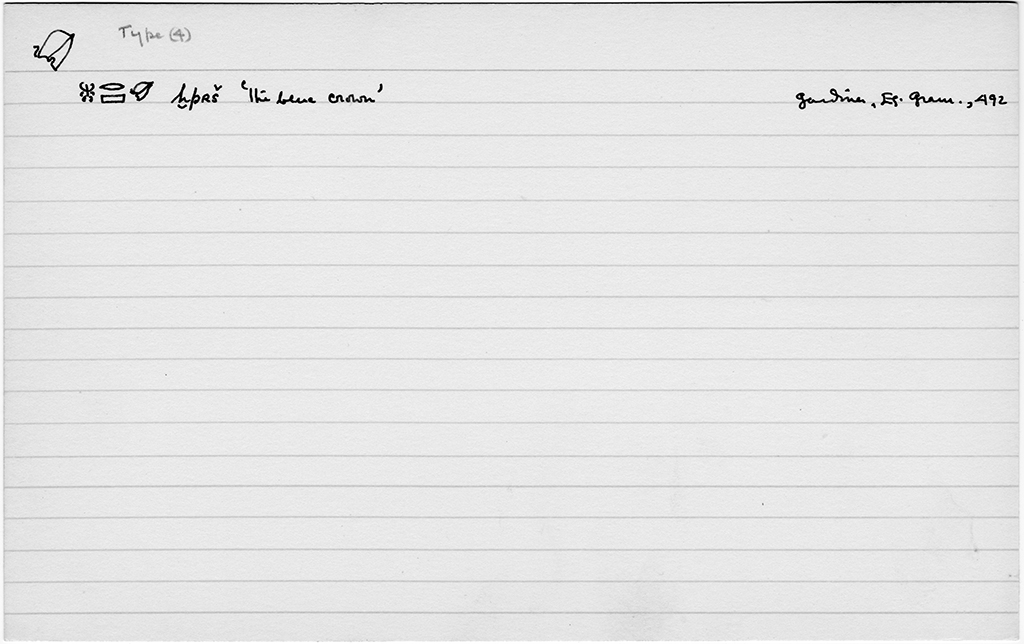 Type (4)
𓆣𓂋𓈙𓋙 ḫprš 'The blue crown' Gardiner, Eg. Gram., 492